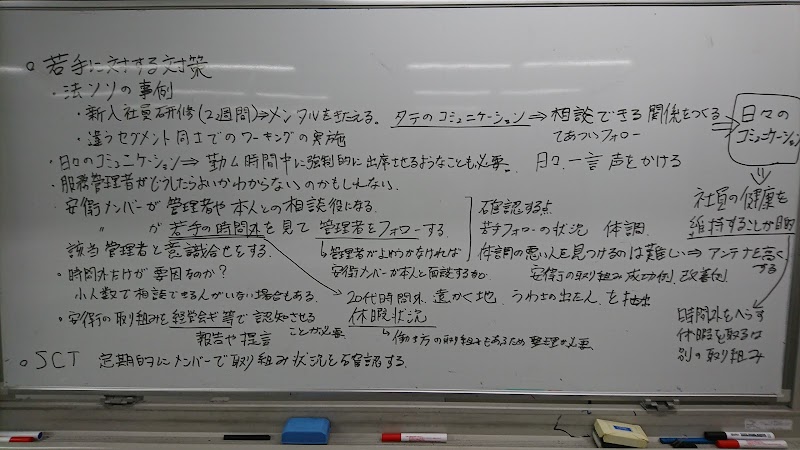 ○ 若手に対する対策
・法ソリの事例
・新入社員研修(2週間)⇒メンタルをきたえる。 タテのコミュニケーション ⇒ 相談できる関係をつくる
てあついフォロー
日々のコミュニケーション
・違うセグメント同士でのワーキングの実施
・日々のコミュニケーション ⇒ 勤ム時間中に強制的に出席させるようなことも必要。 日々、一言声をかける
・服務管理者がどうしたらよいかわからないのかもしれない。
・安衛メンバーが管理者や本人との相談役になる。
〃 が若手の時間外を見て管理者をフォローする。
該当管理者と意識合せをする。
確認する点
若手フォローの状況 体調
体調の悪い人を見つけるのは難しい ⇒ アンテナを高くする
安衛の取り組み成功例、改善例
社員の健康を
維持することが目的
↳管理者が上手くいかなければ
安衛メンバーが本人と面談する
・時間外だけが要因なのか?
小人数で相談できる人がいない場合もある。
20代時間外、遠かく地、うわさの出た人を抽出
休暇状況
↳ 働き方の取り組みもあるため整理が必要
・安衛の取り組みを経営会ギ等で認知させる
報告や提言 ことが必要
時間外をへらす
休暇を取るは
別の取り組み
○ SCT 定期的にメンバーで取り組み状況を確認する。